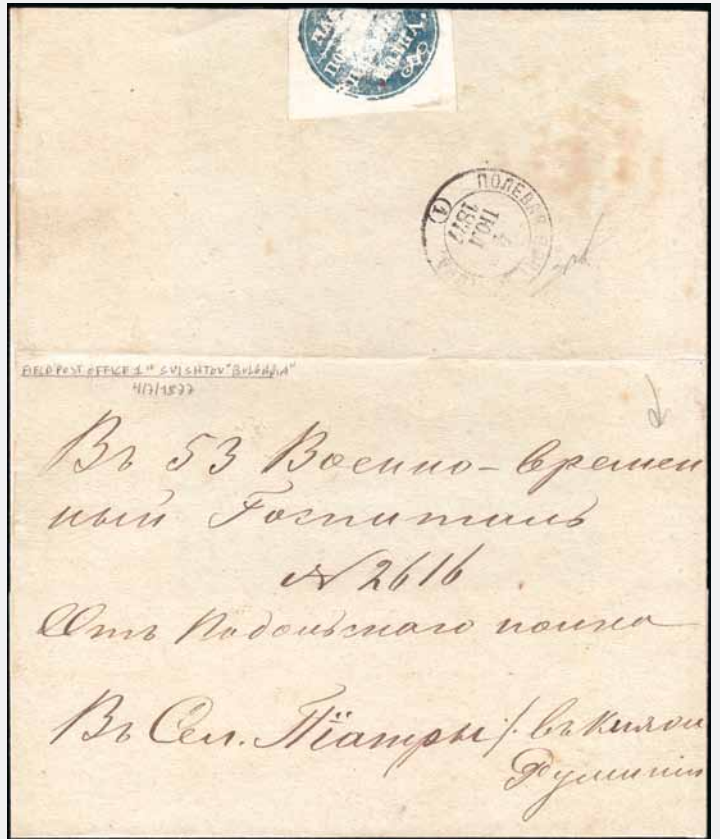 ПОЛЕВАЯ
1
4
ІЮЛ
1877
FIELD POST OFFICE 1 "SVISHTOV" BULGARIA"
4/7/1877
Въ 53 Военно-времен
ный Госпиталь
№ 2616
Отъ Подольскаго полка
Въ Сел. Піатры /. въ княж.
Румыніи